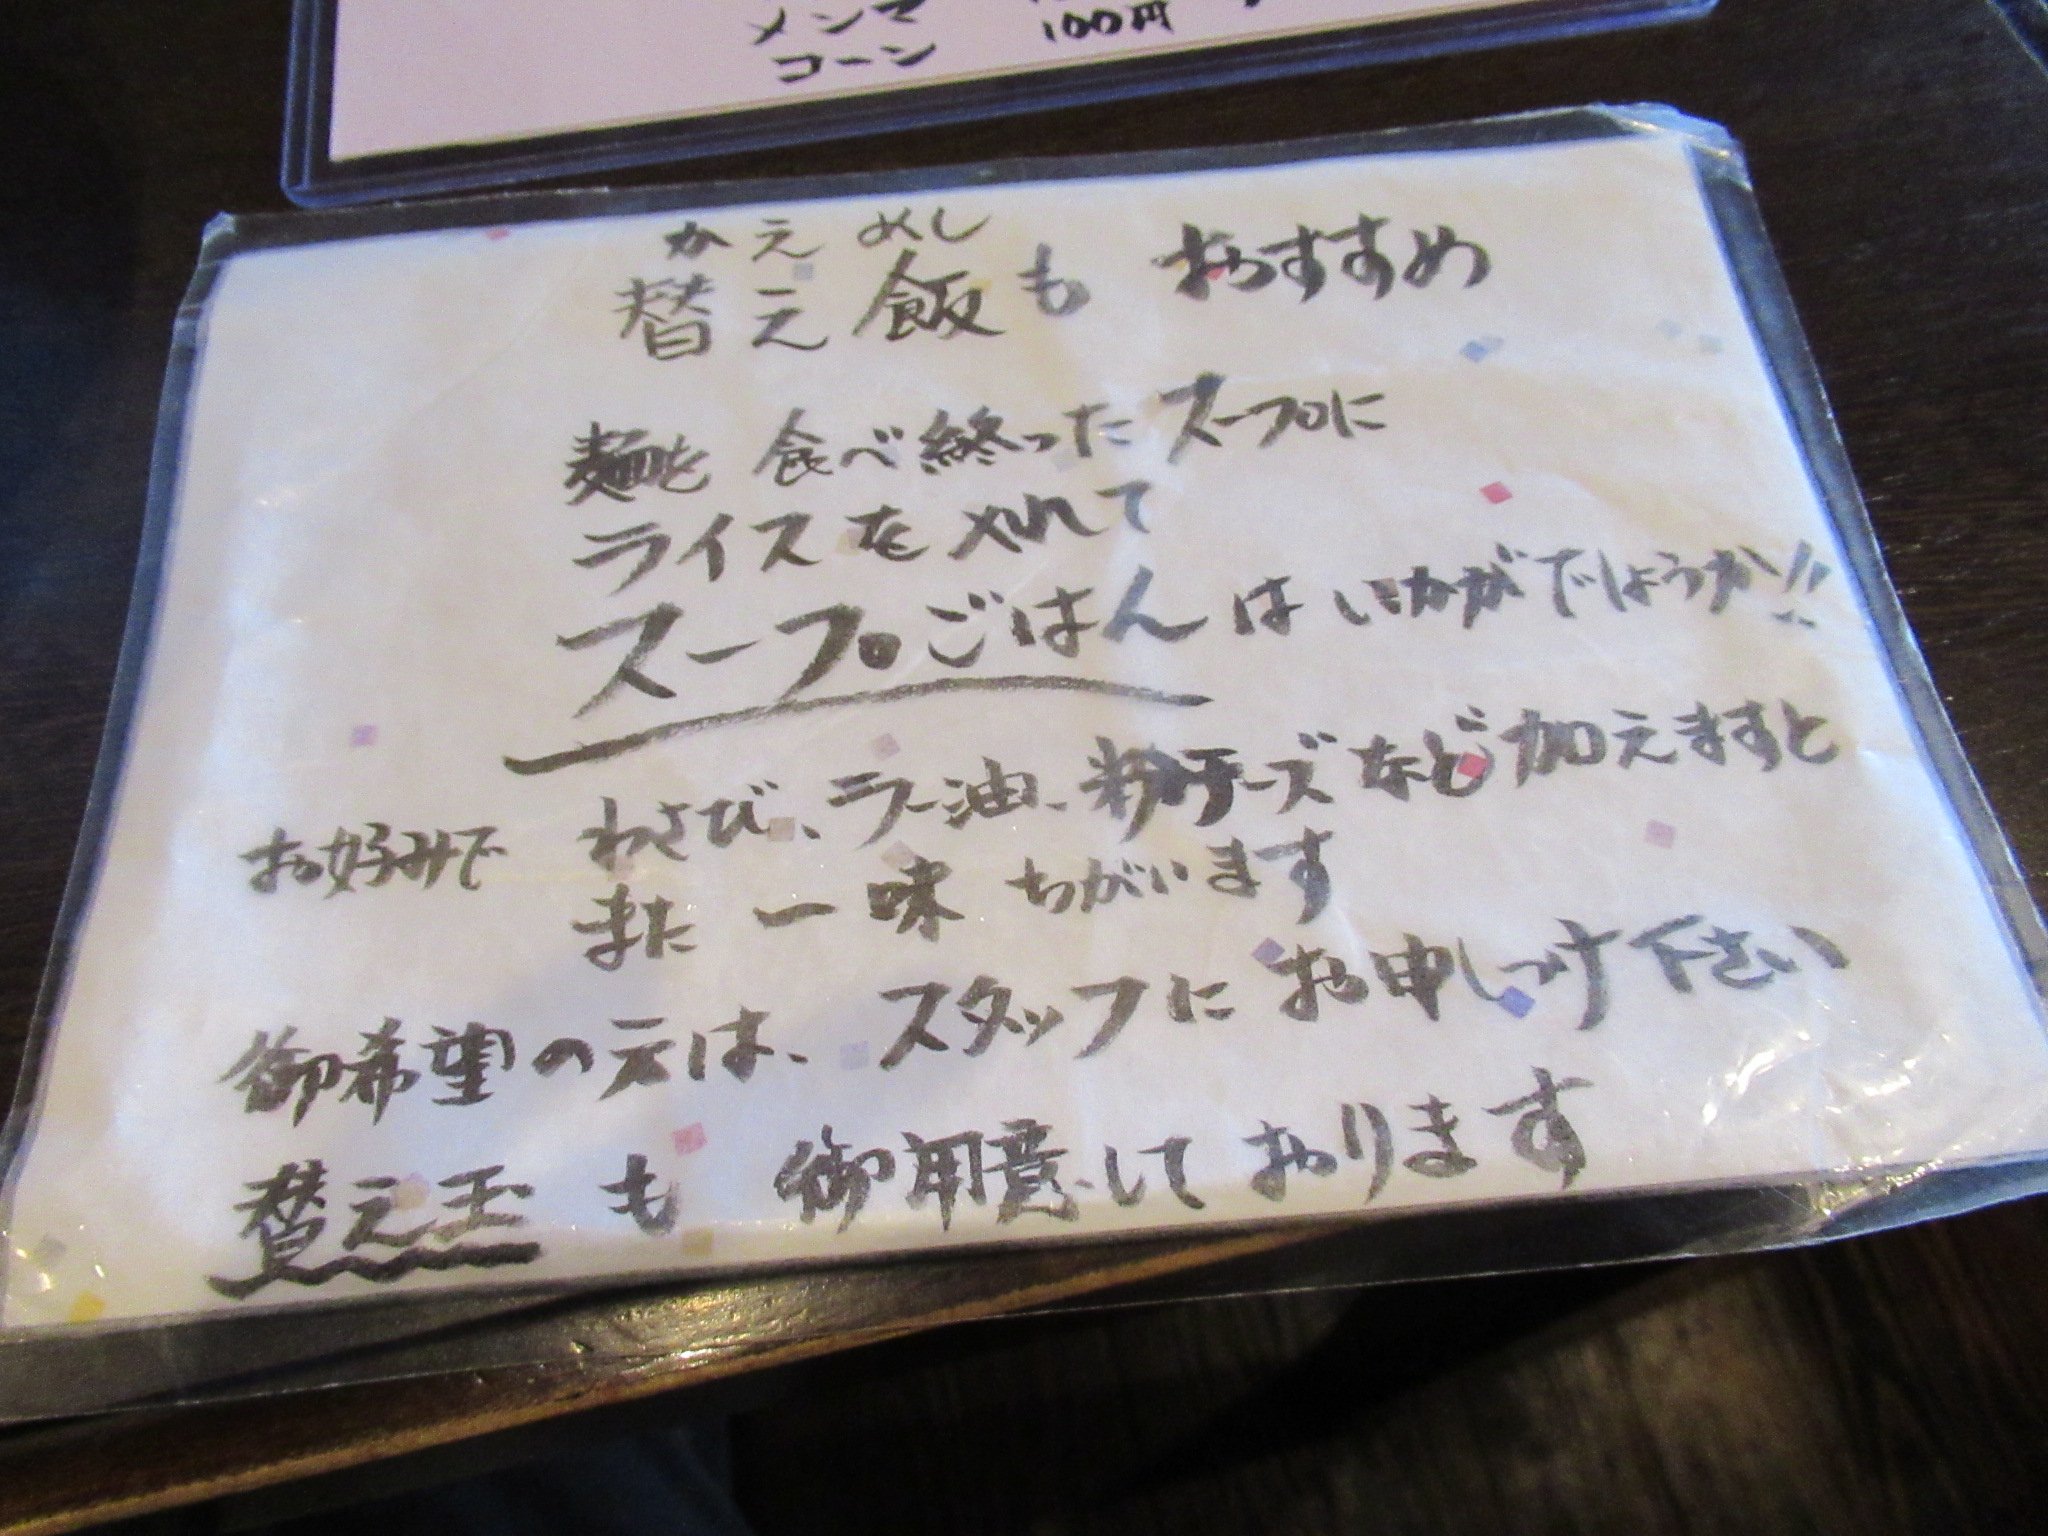 メンマ
コーン 100円
かえめし
替え飯も おすすめ
麺を 食べ終ったスープに
ライスを入れて
スープごはんはいかがでしょうか!!
お好みで わさび、ラー油、粉チーズなど加えますと
また 一味 ちがいます
御希望の方は、スタッフにお申しつけ下さい
替え玉も 御用意しております